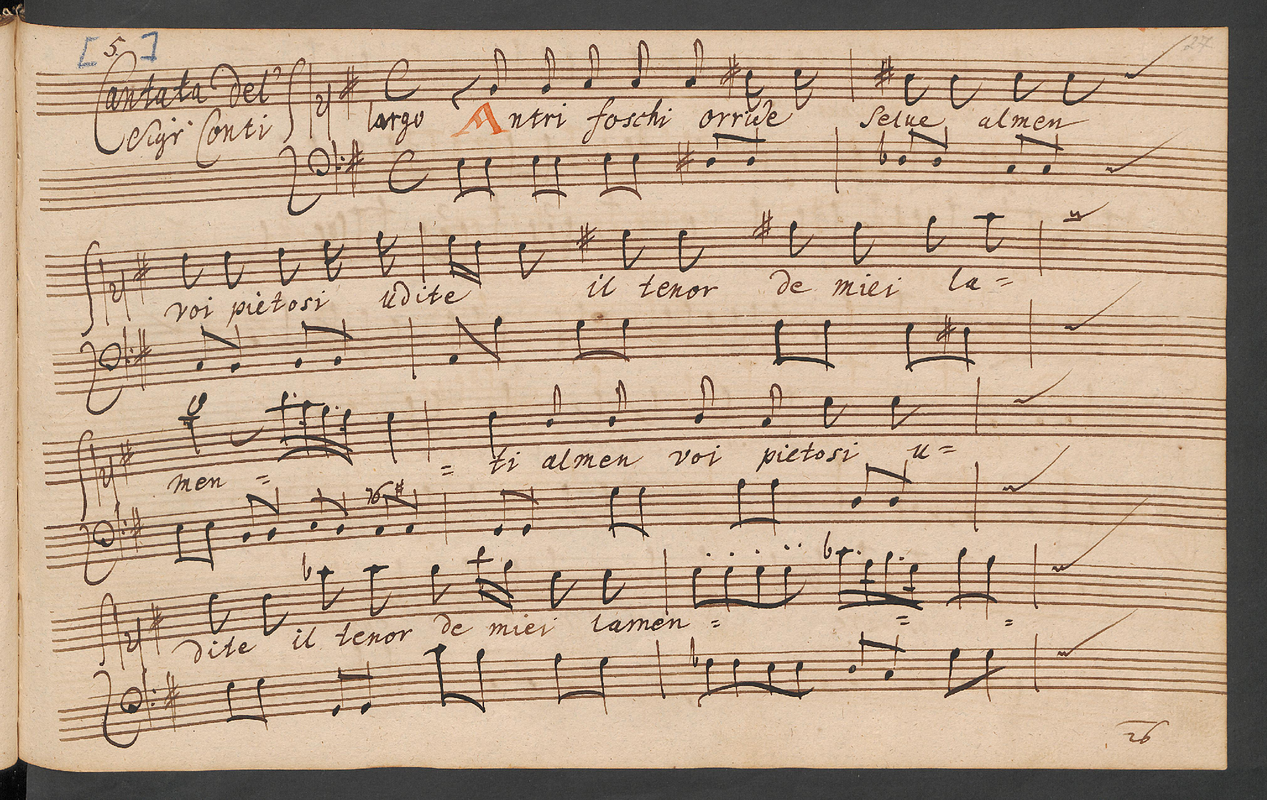 [5.]
27
Cantata del'
Sigr Conti
largo Antri foschi orride Selue almen
voi pietosi udite il tenor de miei la=
men = = ti almen voi pietosi u=
76
dite il tenor de miei lamen = = =
26